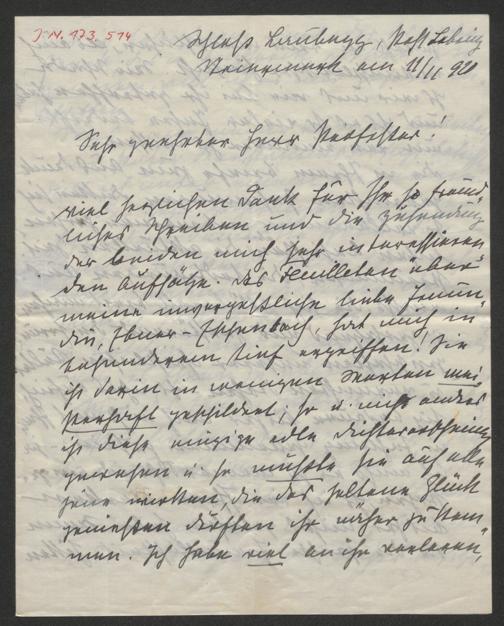 J.N. 173.514
Schloß Laubegg, Post Lebring
Steiermark am 11/11 920
Sehr geehrter Herr Professor!
viel herzlichen Dank für Ihr so freund-
liches Schreiben und die Zusendung
der beiden mich sehr interessieren
den Aufsätze. Das Feuilleton über
meine unvergeßliche liebe Freun-
din, Ebner-Eschenbach, hat mich in
besonderem tief ergriffen! Sie
ist darin in wenigen Worten mei-
sterhaft geschildert, so u. nicht anders
ist diese einzige edle Dichtererscheinung
gewesen u. so mußte sie auf alle
jene wirken, die das seltene Glück
genießen durften ihr näher zu kom-
men. Ich habe viel an ihr verloren,